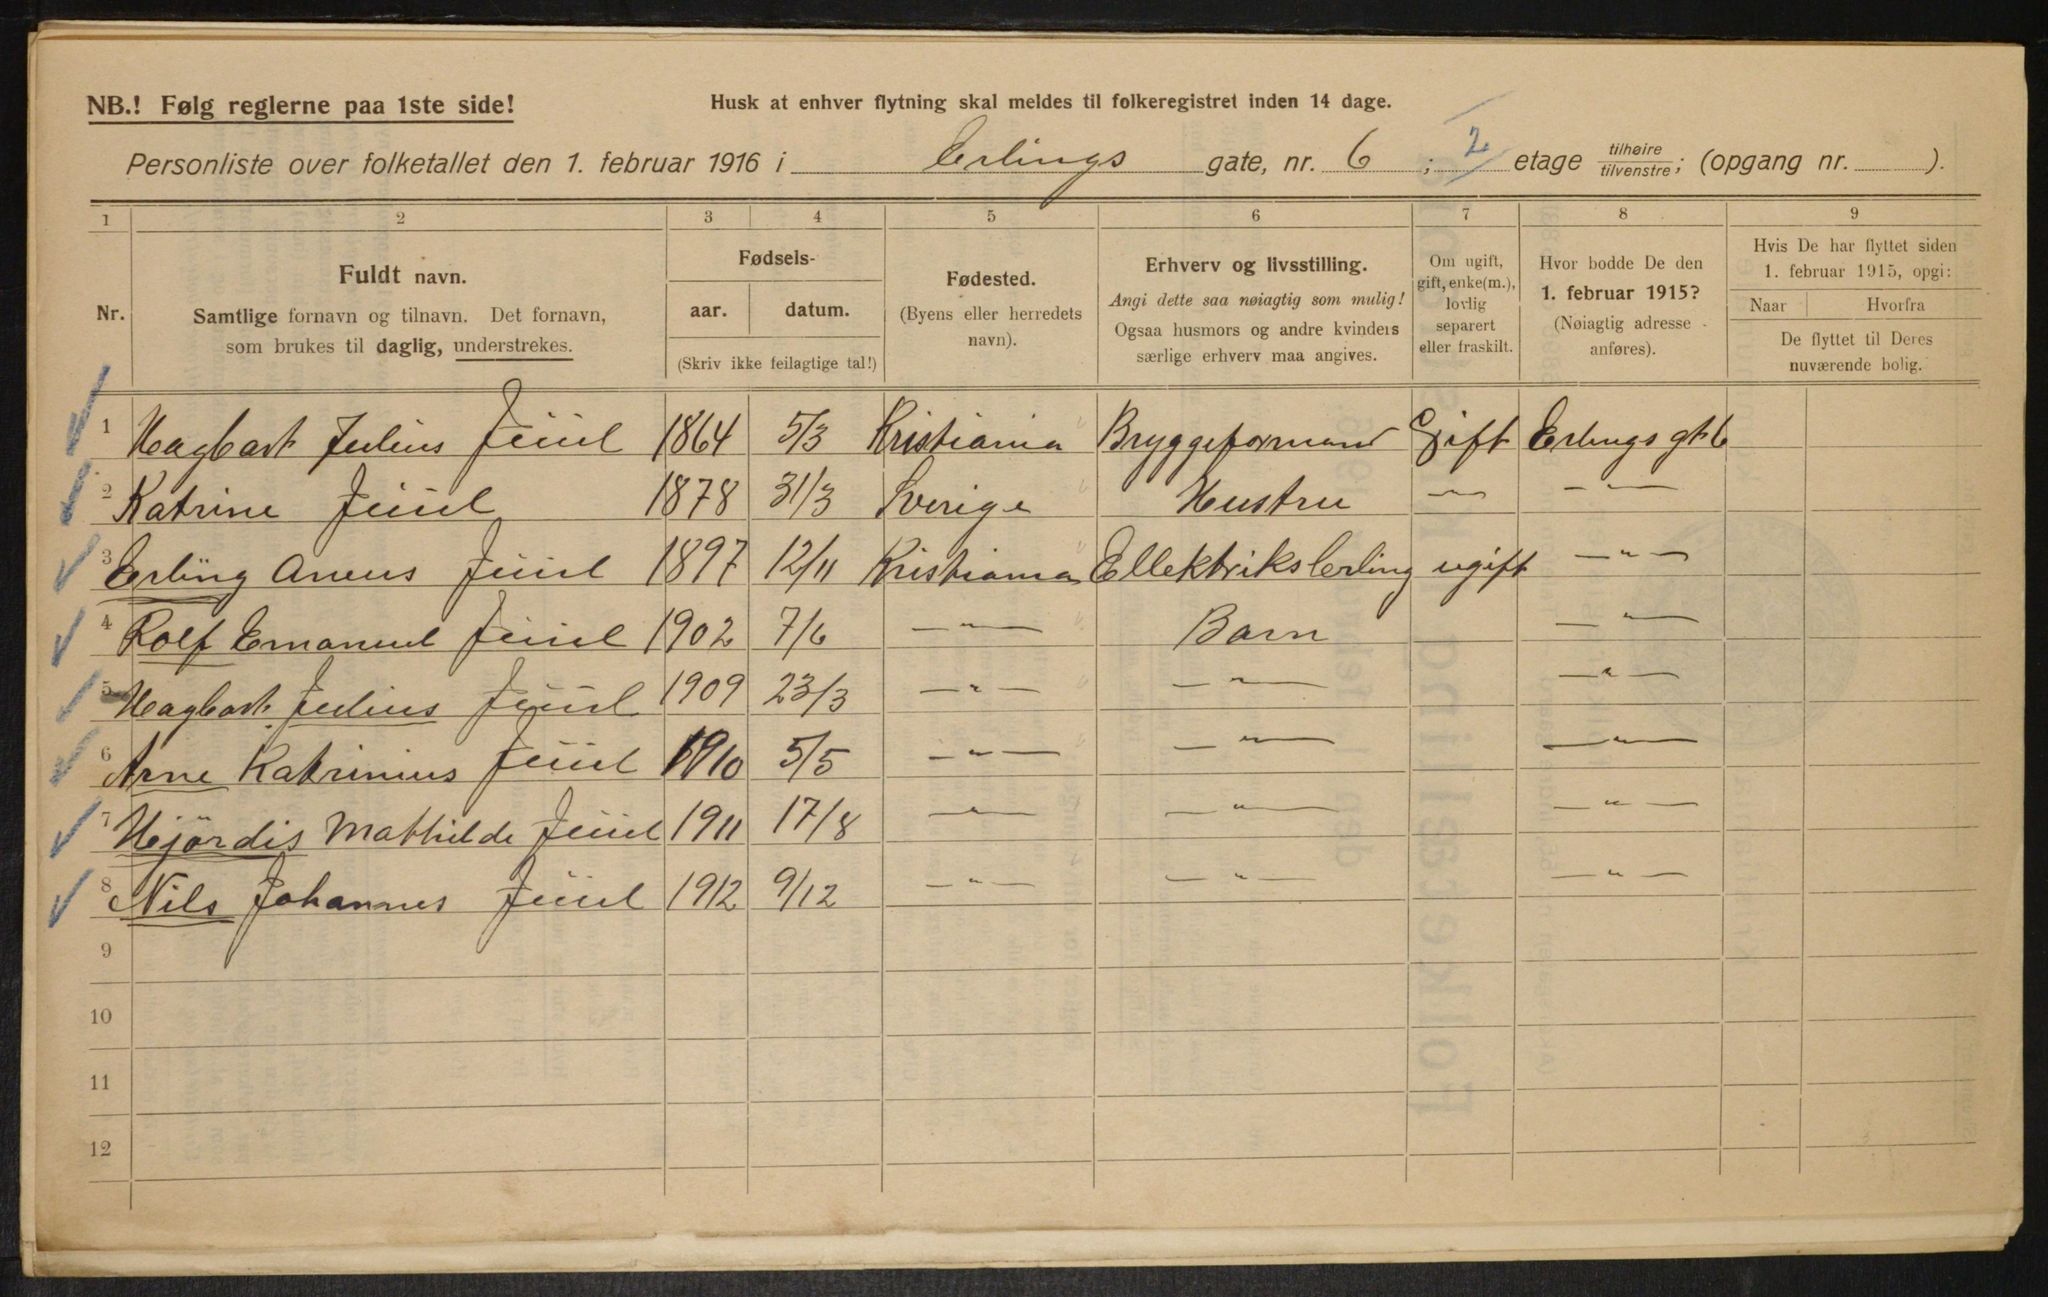 NB.! Følg reglerne paa 1ste side!
Husk at enhver flytning skal meldes til folkeregistret inden 14 dage.
Personliste over folketallet den 1. februar 1916 i Erlings gate, nr. 6 ; 2 etage tilhøire/tilvenstre; (opgang nr. ).
1 2 3 4 5 6 7 8 9
Nr.
Fuldt navn.
Samtlige fornavn og tilnavn. Det fornavn,
som brukes til daglig, understrekes.
Fødsels-
aar. datum.
(Skriv ikke feilagtige tal!)
Fødested.
(Byens eller herredets
navn).
Erhverv og livsstilling.
Angi dette saa nøiagtig som mulig!
Ogsaa husmors og andre kvinders
særlige erhverv maa angives.
Om ugift,
gift, enke(m.),
lovlig
separert
eller fraskilt.
Hvor bodde De den
1. februar 1915?
(Nøiagtig adresse
anføres).
Hvis De har flyttet siden
1. februar 1915, opgi:
Naar Hvorfra
De flyttet til Deres
nuværende bolig.
1 Hagbart Julius Jüül 1864 5/3 Kristiania Bryggeformand Gift Erlings gt 6
2 Katrine Jüül 1878 31/3 Sverige Hustru — " — — " —
3 Erling Jüül 1897 12/11 Kristiania Ellektrikslerling ugift — " —
4 Rolf Emanuel Jüül 1902 7/6 — " — Barn — " —
5 Hagbart Julius Jüül 1909 23/3 — " — — " — — " —
6 Arne Katrinius Jüül 1910 5/5 — " — — " — — " —
7 Hjördis Mathilde Jüül 1911 17/8 — " — — " — — " —
8 Nils Johannes Jüül 1912 9/12 — " — — " — — " —
9
10
11
12